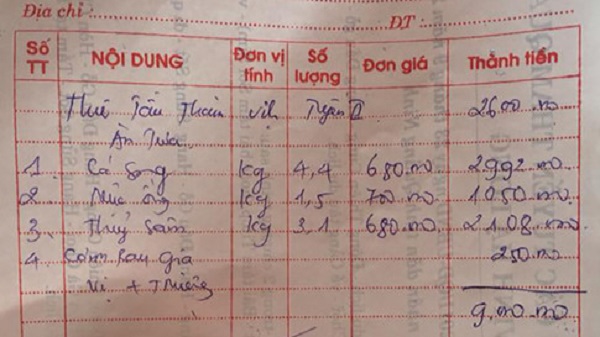 Địa chỉ :
ĐT :
Số TT NỘI DUNG Đơn vị tính Số lượng Đơn giá Thành tiền
Thuê Tàu Tham Vịnh Tuyến II 2600.000
Ăn Trưa
1 Cá Song kg 4,4 680.000 2992.000
2 Mực ống kg 1,5 700.000 1050.000
3 Thuỷ Sâm kg 3,1 680.000 2108.000
4 Cơm Rau Gia 250.000
Vị +
9,000.000